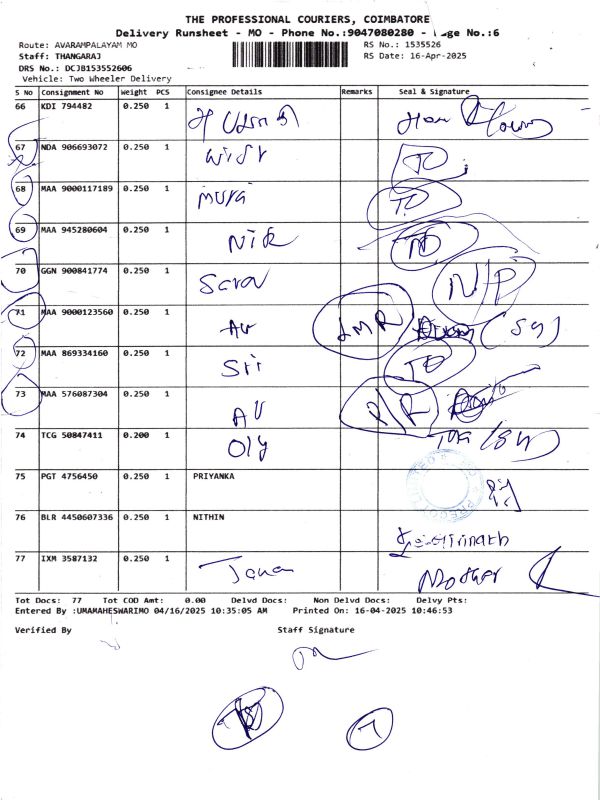 THE PROFESSIONAL COURIERS, COIMBATORE
Delivery Runsheet - MO - Phone No.:9047080280 - Page No.:6
Route: AVARAMPALAYAM MO RS No.: 1535526
Staff: THANGARAJ RS Date: 16-Apr-2025
DRS No.: DCJB153552606
Vehicle: Two Wheeler Delivery
S No Consignment No Weight PCS Consignee Details Remarks Seal & Signature
66 KDI 794482 0.250 1
67 NDA 906693072 0.250 1 TO
68 MAA 9000117189 0.250 1 TO
69 MAA 945280604 0.250 1
70 GGN 900841774 0.250 1 N/P
71 MAA 9000123560 0.250 1
72 MAA 869334160 0.250 1 Sri TO
73 MAA 576087304 0.250 1 R/R
74 TCG 50847411 0.200 1 Oly
75 PGT 4756450 0.250 1 PRIYANKA
76 BLR 4450607336 0.250 1 NITHIN
77 IXM 3587132 0.250 1 Mother
Tot Docs: 77 Tot COD Amt: 0.00 Delvd Docs: Non Delvd Docs: Delvy Pts:
Entered By :UMAMAHESWARIMO 04/16/2025 10:35:05 AM Printed On: 16-04-2025 10:46:53
Verified By Staff Signature
7